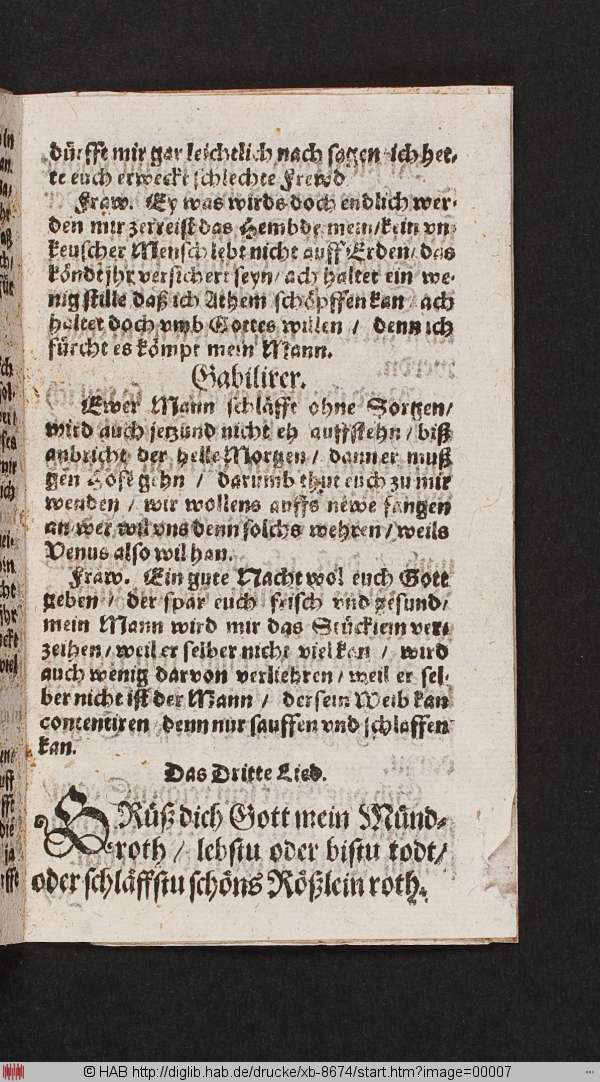 dürfft mir gar leichtlich nach sagen ich het-
te euch erweckt schlechte Frewd
Fraw. Ey was wirds doch endlich wer-
den nur zerreist das Hembde mein/kein vn-
keuscher Mensch lebt nicht auff Erden/das
köndt jhr versichert seyn/ach haltet ein we-
nig stille daß ich Athem schöpffen kan/ach
haltet doch vmb Gottes willen / denn ich
fürcht es kömpt mein Mann.
Gabilirer.
Ewer Mann schläfft ohne Sorgen/
wird auch jetzund nicht eh auffstehn/biß
anbricht der helle Morgen/dann er muß
gen Hofe gehn / darumb thut euch zu mir
wenden / wir wollens auffs newe fangen
an/wer wil vns denn solchs wehren/weils
Venus also wil han.
Fraw. Ein gute Nacht wol euch Gott
geben / der spar euch frisch vnd gesund/
mein Mann wird mir das Stücklem ver-
zeihen/weil er selber nicht viel kan / wird
auch wenig darvon verliehren/weil er sel-
ber nicht ist der Mann / der sein Weib kan
contentiren denn nur sauffen vnd schlaffen
kan.
Das Dritte Lied.
GRüß dich Gott mein Münd-
roth / lebstu oder bistu todt/
oder schläffstu schöns Rößlein roth.
© HAB http://diglib.hab.de/drucke/xb-8674/start.htm?image=00007